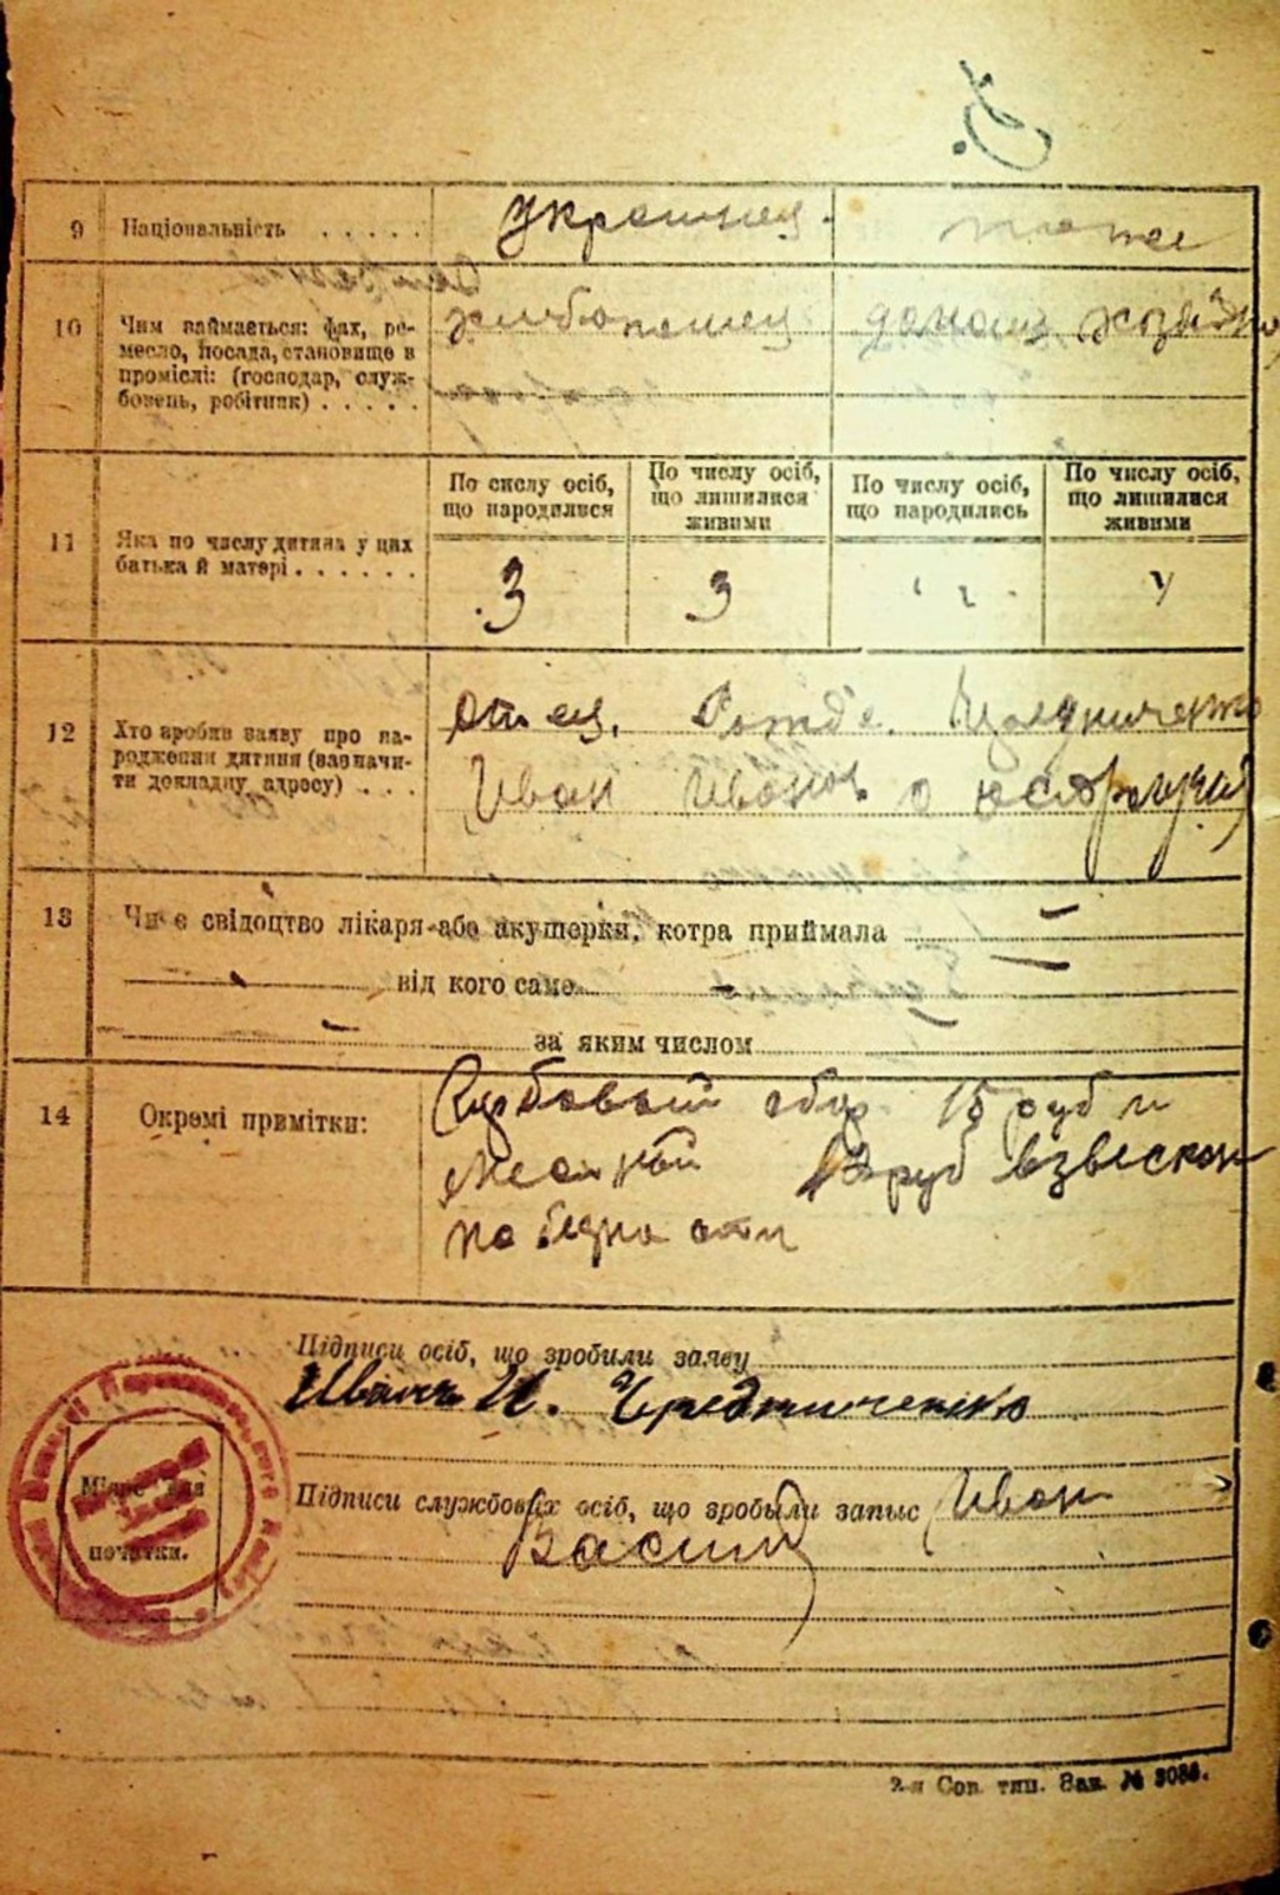 9 Національність . . . . . украинец. тоже
10 Чим займається: фах, ре-
месло, посада, становище в
промислі: (господар, служ-
бовець, робітник) . . . . .
хлибопашец домаш хозяйка
11 Яка по числу дитина у цих
батька й матері . . . . . .
По числу осіб,
що народилися
По числу осіб,
що лишилися
живими
По числу осіб,
що народились
По числу осіб,
що лишилися
живими
3 3
12 Хто зробив заяву про на-
родження дитини (вазначи-
ти докладну адресу) . . .
отец.
Иван Иванов
13 Чи є свідоцтво лікаря або акушерки, котра приймала
від кого саме
за яким числом
14 Окремі примітки:
сбор 15 руб и
местный руб взвескан
по бедности
Підписи осіб, що зробили заяву
Иванъ И. Чредниченко
Місце для
печатки.
Підписи службових осіб, що зробыли запыс Иван
2-я Сов. тип. Зак. №